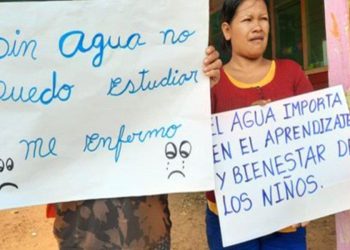 Sin agua no
puedo estudiar
Me enfermo
EL AGUA IMPORTA
EN EL APRENDIZAJE
Y BIENESTAR DE
LOS NIÑOS.